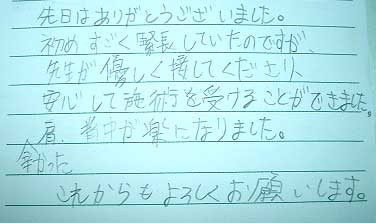 先日はありがとうございました。
初めすごく緊張していたのですが、
先生が優しく接してくださり、
安心して施術を受けることができました。
肩、背中が楽になりました。
良かった
これからもよろしくお願いします。